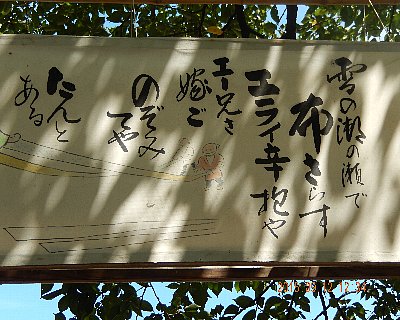 雪の瀬の瀬で
布さらす
エライ辛抱や
エー兄さ
嫁ご
のぞみ
てや
たんと
ある